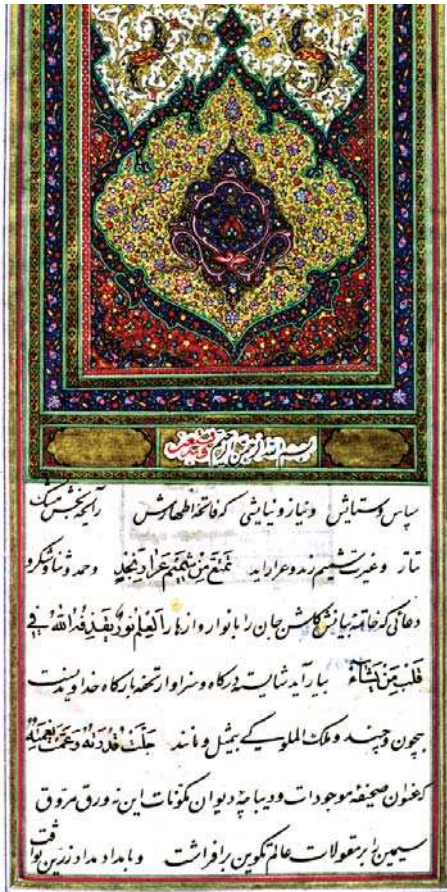 بسم الله الرحمن الرحیم وبه نستعین
سپاس و ستایش و نیاز و نیایشی که فاتحهٔ اظهارش رایحه بخش مشک
تتار و غیرت شمیم رند و عرار اید تمتع من شمیم عرار نجد و حمد و ثنا و شکر و
دعائی که خاتمهٔ بیانش گلشن جان را بانوار و ازهار العلم نور یقذفه الله فی
قلب من یشاء بیارآید شایستهٔ درگاه و سزاوار تحفهٔ بارگاه خداوندیست
بیچون و چند و ملک الملوکی بیمثل و مانند جلت قدرته و عمت نعمته
که عنوان صحیفهٔ موجودات و دیباجهٔ دیوان مکونات این نه ورق مروق
سیمین را بر مقولات عالم تکوین برافراشت و بامداد مداد زرین